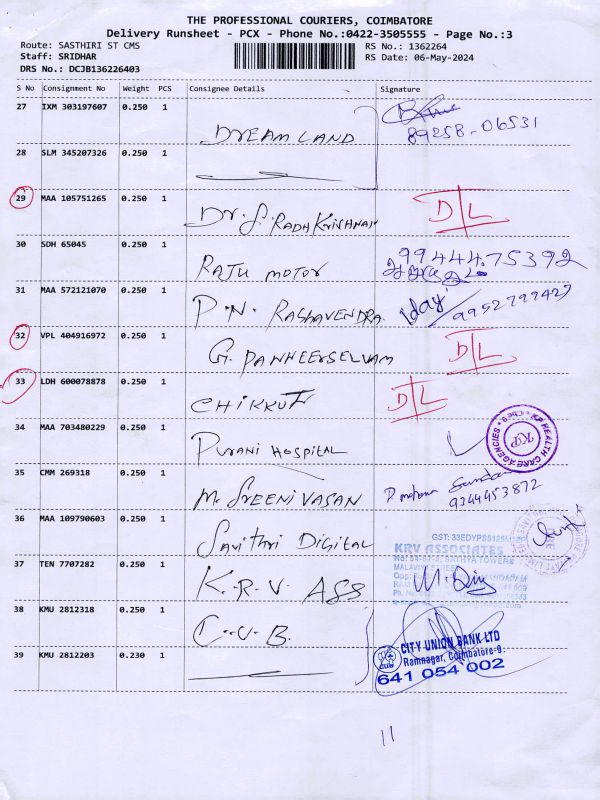 THE PROFESSIONAL COURIERS, COIMBATORE
Delivery Runsheet - PCX - Phone No.:0422-3505555 - Page No.:3
Route: SASTHIRI ST CMS RS No.: 1362264
Staff: SRIDHAR RS Date: 06-May-2024
DRS No.: DCJB136226403
S No Consignment No Weight PCS Consignee Details Signature
27 IXM 303197607 0.250 1
DREAM LAND 89258-06531
28 SLM 345207326 0.250 1
29 MAA 105751265 0.250 1
Dr. S. RADHKRISHNAN D/L
30 SDH 65045 0.250 1
RAJU MOTOR 99444.75392
31 MAA 572121070 0.250 1
P.N. RAGHAVENDRA 9952799427
32 VPL 404916972 0.250 1
G. PANNEERSELVAM D/L
33 LDH 600078878 0.250 1
CHIKKUF D/L
34 MAA 703480229 0.250 1
PURANI HOSPITAL
KP HEALTH CARE AGENCIES
KP
CBE-9
35 CMM 269318 0.250 1
M. SREENIVASAN 9344453872
36 MAA 109790603 0.250 1
Savithri Digital
GST: 33EDYPS8125M1
KRV ASSOCIATES
37 TEN 7707282 0.250 1
K.R.V. ASS
38 KMU 2812318 0.250 1
C.U.B.
CITY UNION BANK LTD
Ramnagar, Coimbatore-9.
CUB
641 054 002
39 KMU 2812203 0.230 1
11